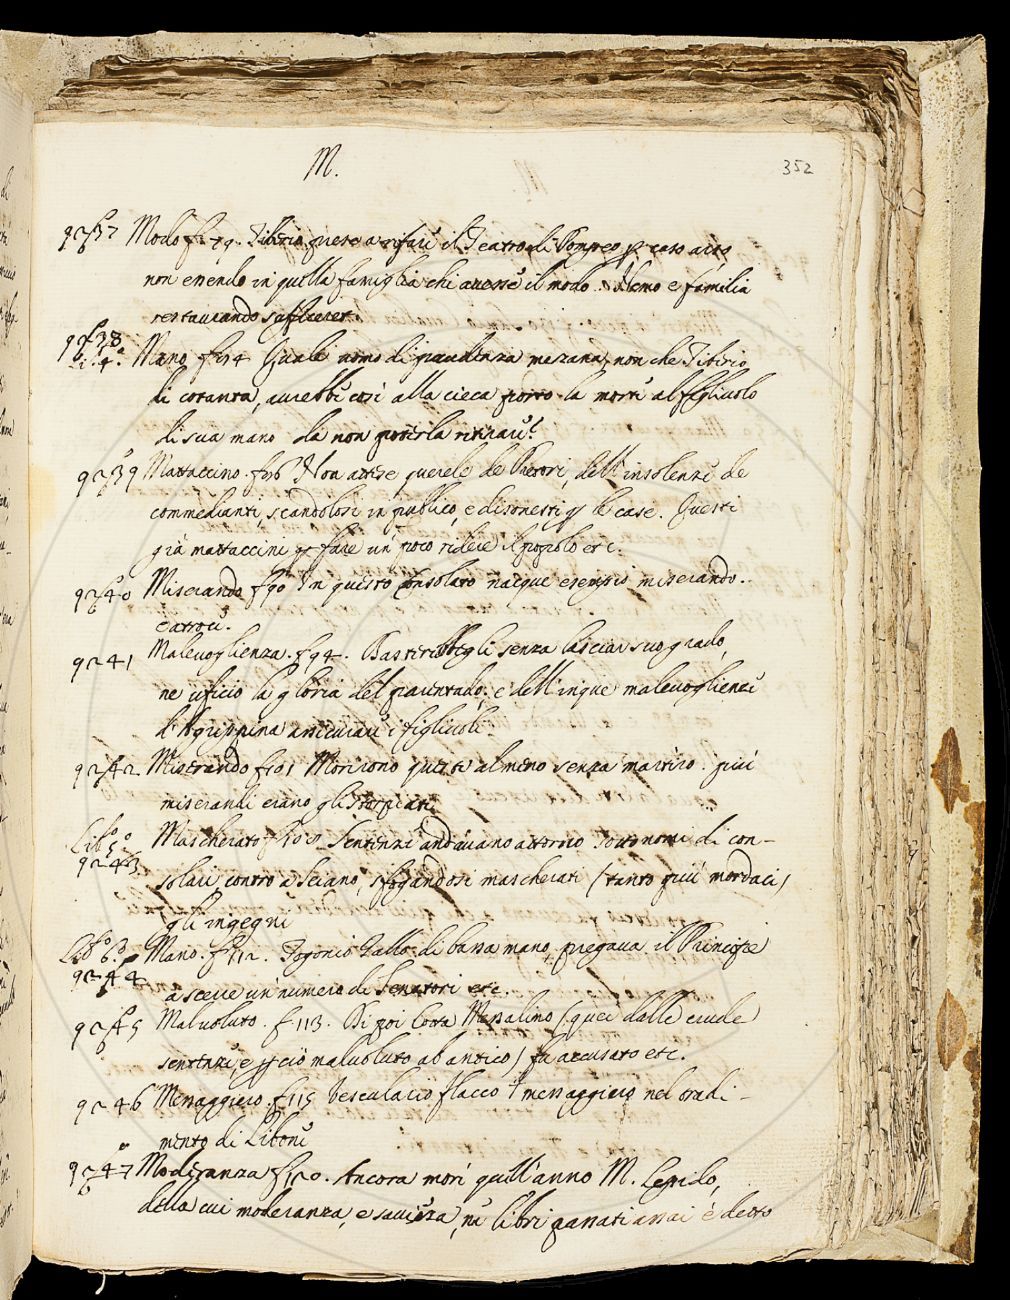 M.
352
9237 Modo f. 79. Tiberio prese a rifare il Teatro di Pompeo p. caso arso
non essendo in quella famiglia chi avesse il modo. Nemo e familia
restaurando sufficeret.
9238
Li. 4.° Mano f. 84 Quale uomo di prudenza mezana, non che Tiberio
di cotanta, avrebbe così alla cieca porto la morte al figliuolo
di sua mano da non poterla ritirare?
9239 Mattaccino. f. 86 Non attese querele de Pretori, dell'insolenze de
commedianti, scandolosi in publico, e disonesti p le case. Questi
già mattaccini p fare un poco ridere il popolo etc.
9240 Miserando f. 90 In questo Consolato nacque esempio miserando.
e atroce.
9241 Malevoglienza. f. 94. Bastirebbegli senza lasciar suo grado,
ne uficio la gloria del parentado; e dell'inique malevoglienze
d'Agrippina assicurare i figliuoli
9242 Miserando f. 101 Morirono questi almeno senza martiro. più
miserandi erano gli storpiati
Lib.° 5.° Mascherato f. Sentenze andavano attorno sotto nomi di con-
9243
solari contro a Seiano, sfogandosi mascherati (tanto più mordaci)
gli ingegni
Lib.° 6.° Mano. f. 112. Togonio Gallo di bassa mano, pregava il Principe
9244
a scerre un numero di Senatori etc.
9245 Malvoluto. f. 113. Di poi Cotta Messalino (quei dalle crude
sentenze e p ciò malvoluto ab antico) fu accusato etc.
9246 Messaggiero f. 115 Vesculario Flacco messaggiero nel tradi-
mento di Libone
9247 Moderanza f. 120. Ancora morì quell'anno M. Lepido,
della cui moderanza, e saviezza, ne libri passati assai è detto